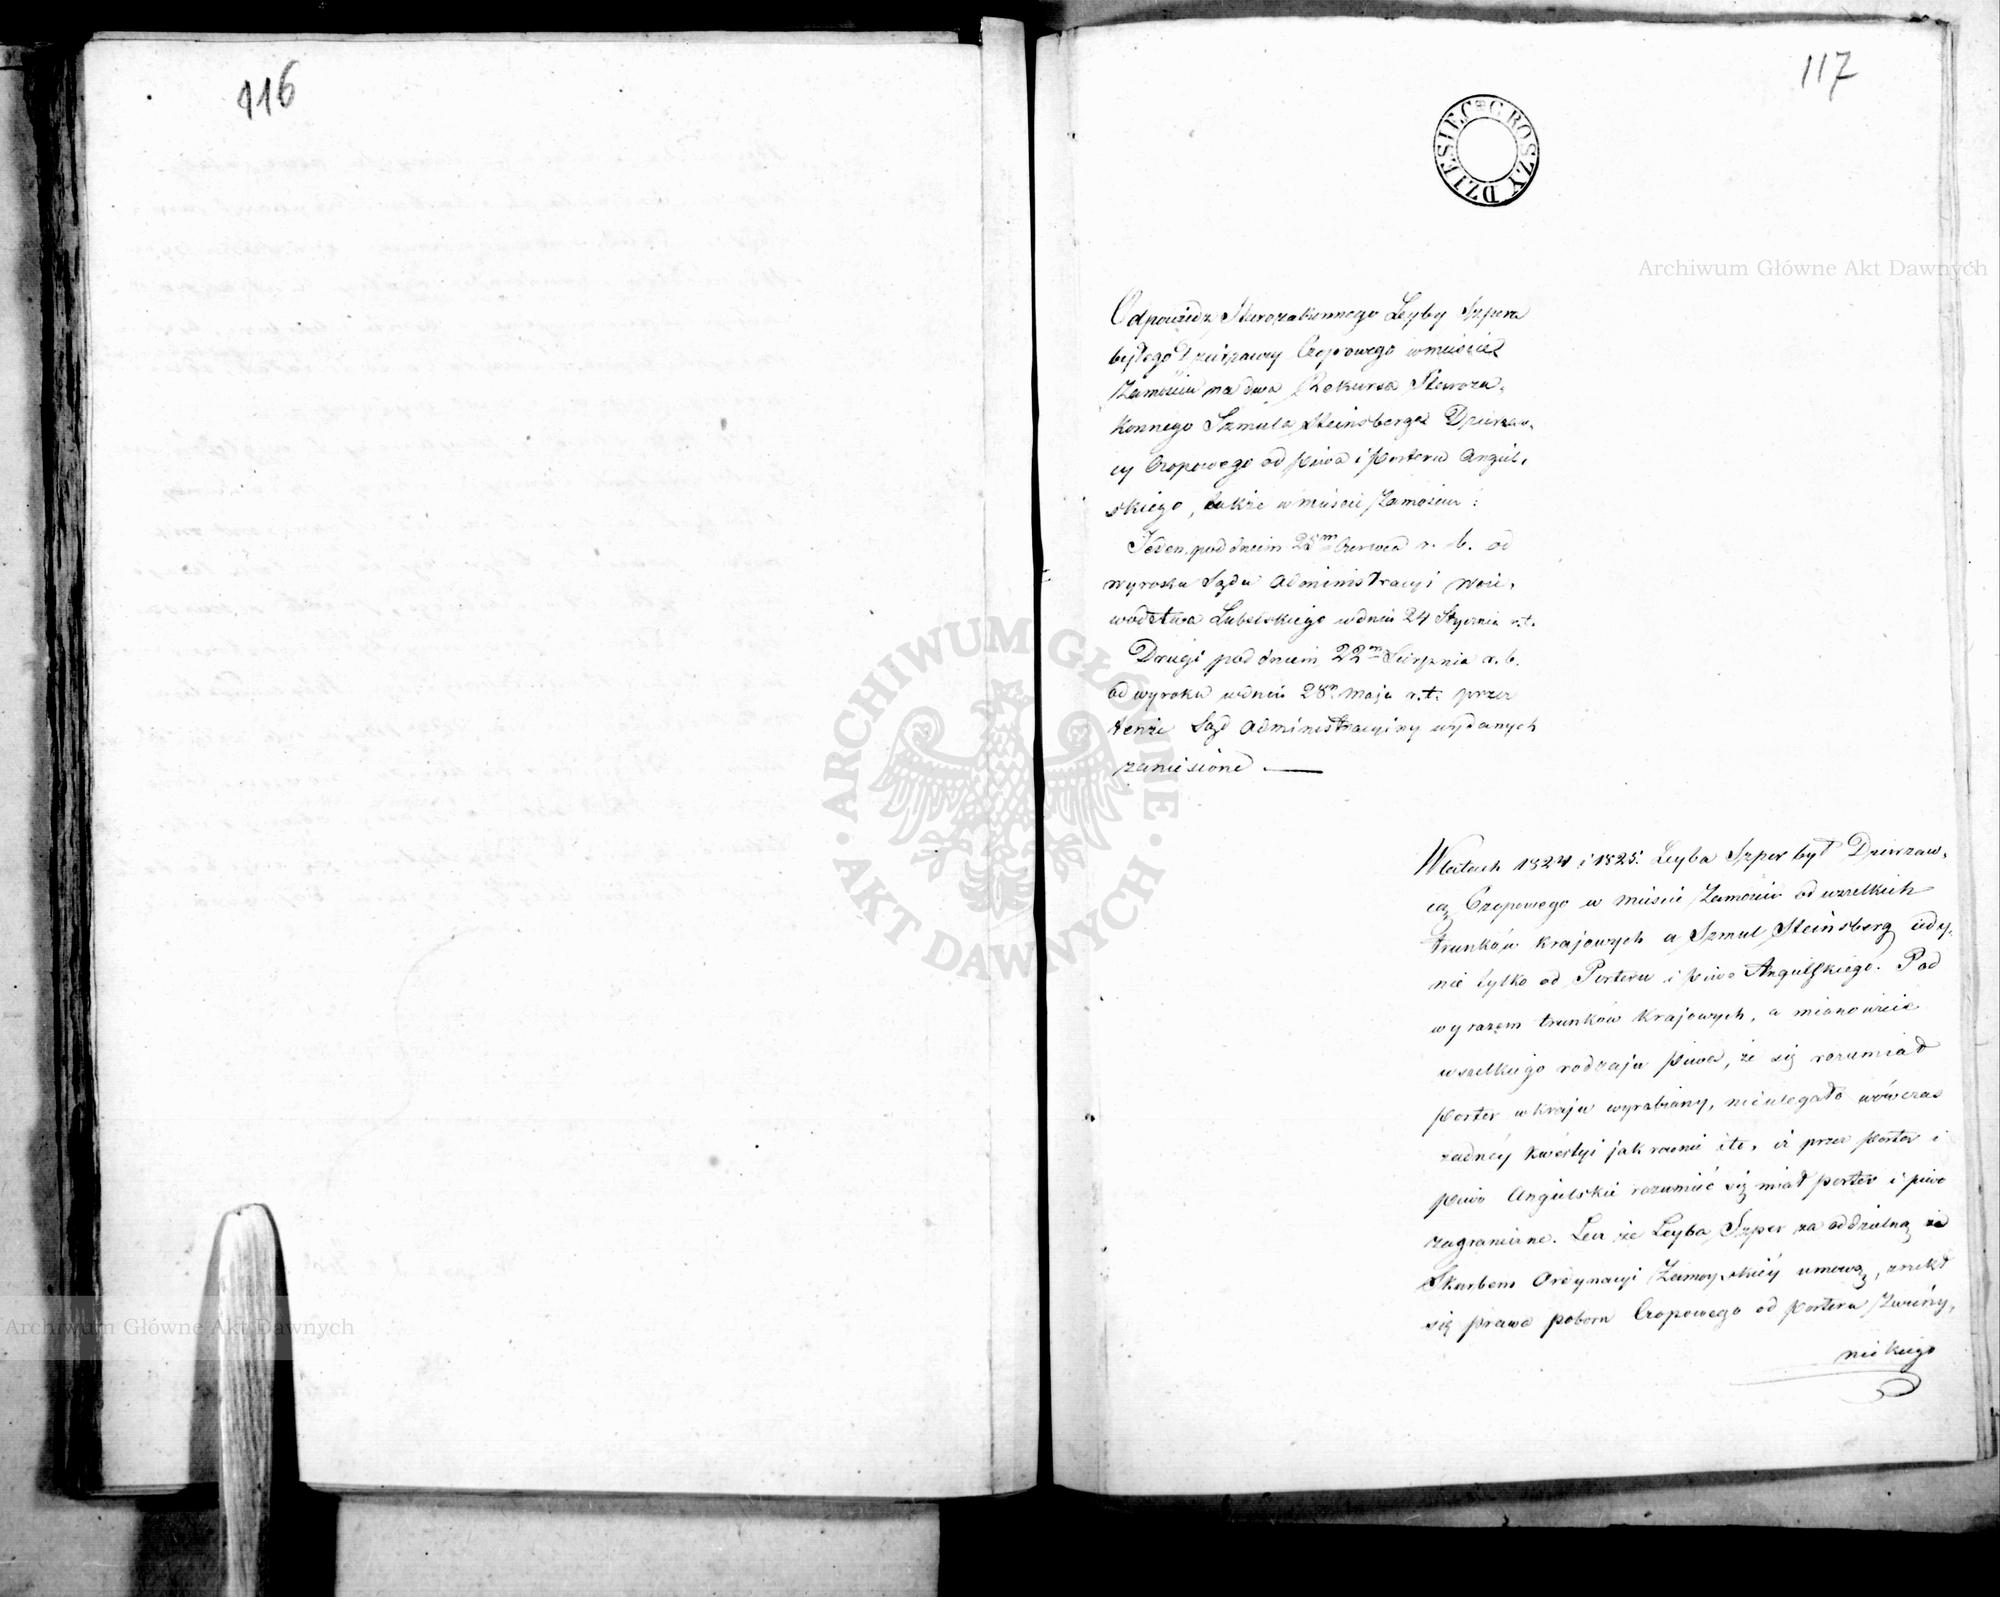 116
117
DZIESIĘĆ GROSZY
Archiwum Główne Akt Dawnych
Odpowiedz Starozakonnego Leyby Szpera
byłego Dzierzawcy Czopowego w mieście
Zamościu na dwa Rekursa Staroza-
konnego Szmula Steinsberga Dzierzaw-
cy Czopowego od piwa i porteru Angiel-
skiego, także w mieście Zamościu:
Jeden pod dniem 28m Czerwca r. b. od
wyroku Sądu Administracyi Woie-
wództwa Lubelskiego w dniu 24 Stycznia r.t.
Drugi pod dniem 22m Sierpnia r. b.
od wyroku w dniu 28m Maja r.t. przez
tenże Sąd Administracyiny wydanych
zaniesione
W latach 1824 i 1825. Leyba Szper był Dzierzaw-
cą Czopowego w mieście Zamościu od wszelkich
trunków krajowych a Szmul Steinsberg iedy-
nie tylko od Porteru i piwa Angielskiego. Pod
wyrazem trunków krajowych, a mianowicie
wszelkiego rodzaju piwa, że się rozumiał
porter w kraju wyrabiany, nieulegało wówczas
żadnéy kwestyi jak rownie i to, iż przez porter i
piwo Angielskie rozumieć się miał porter i piwo
zagraniczne. Lecz że Leyba Szper za oddzielną ze
Skarbem Ordynacyi Zamoyskiéy umową, zrzekł
się prawa poboru Czopowego od porteru Zwierzy-
nieckiego
ARCHIWUM GŁÓWNE · AKT DAWNYCH ·
Archiwum Główne Akt Dawnych